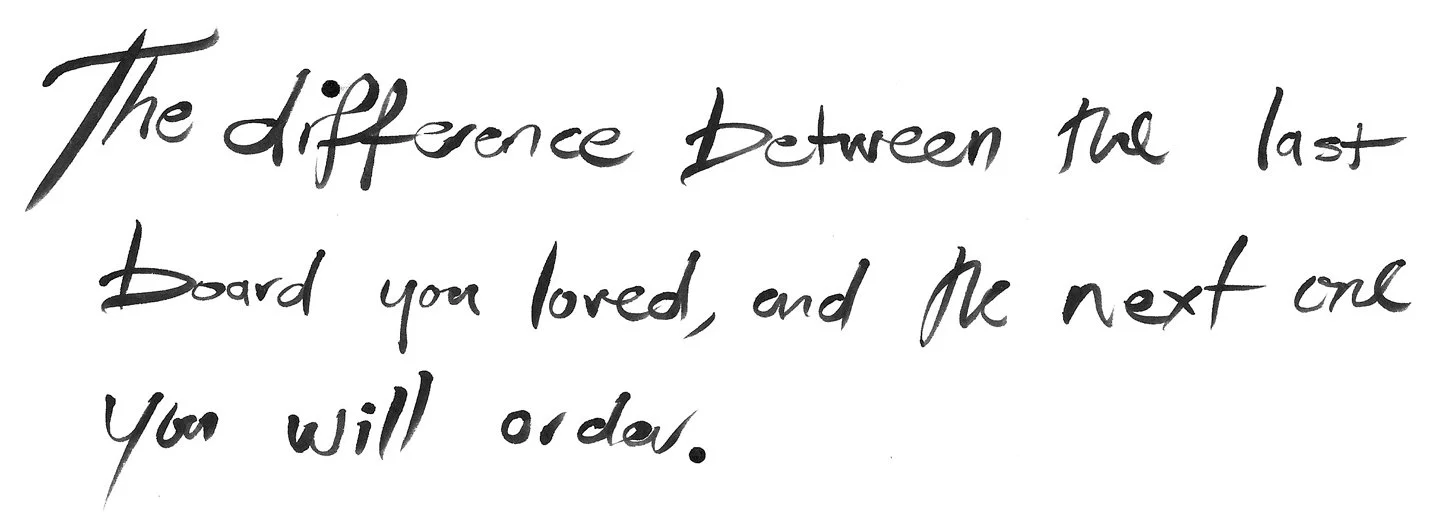 The difference between the last
board you loved, and the next one
you will order.